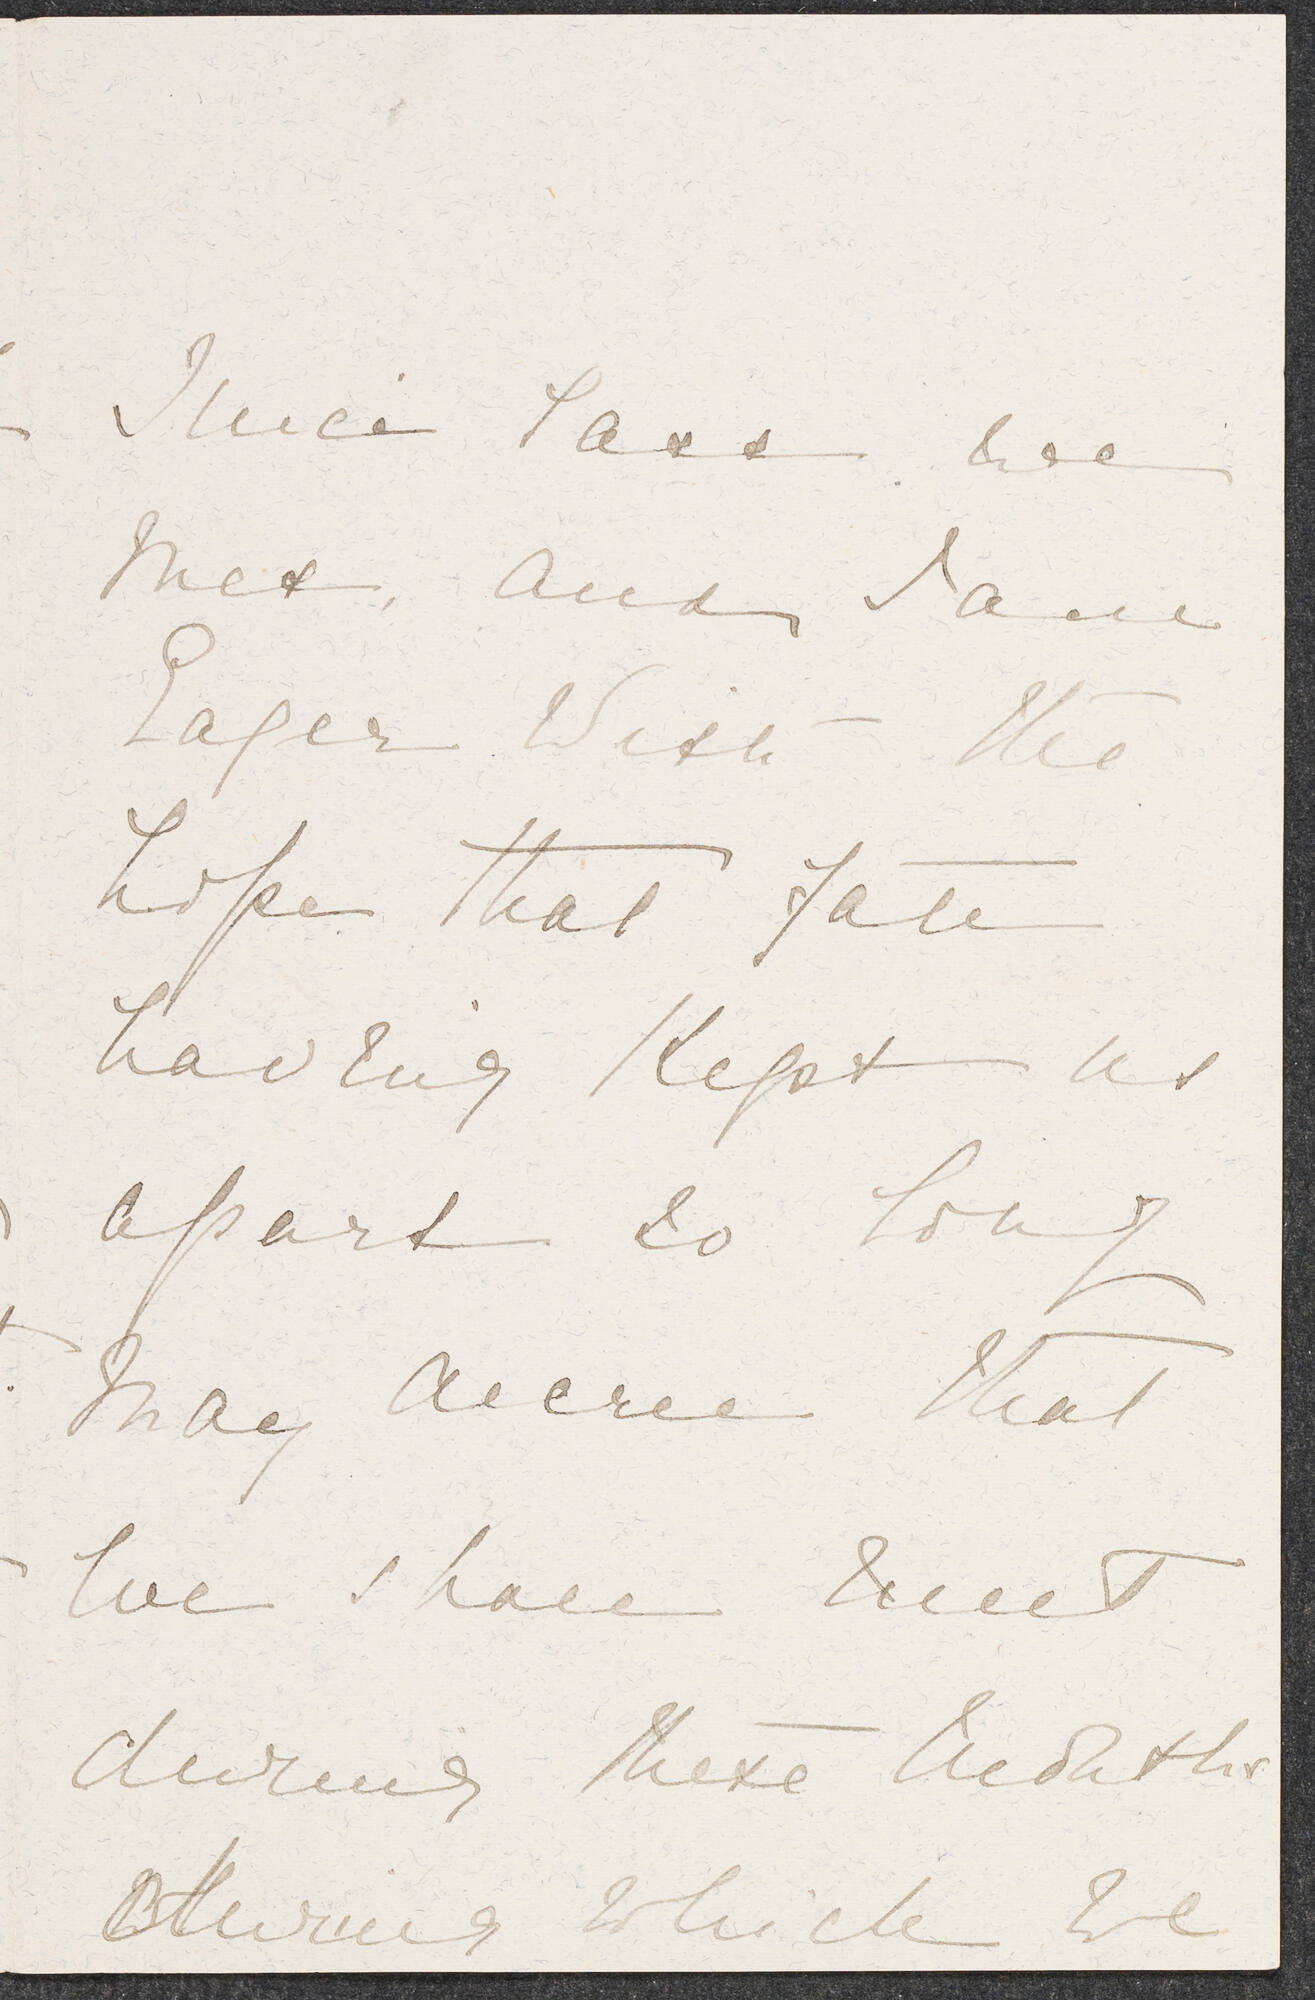 Since last we
met, and I am
Eager with the
hope that Fate
having kept us
apart so long
may decree that
we shall meet
during these months
during which we